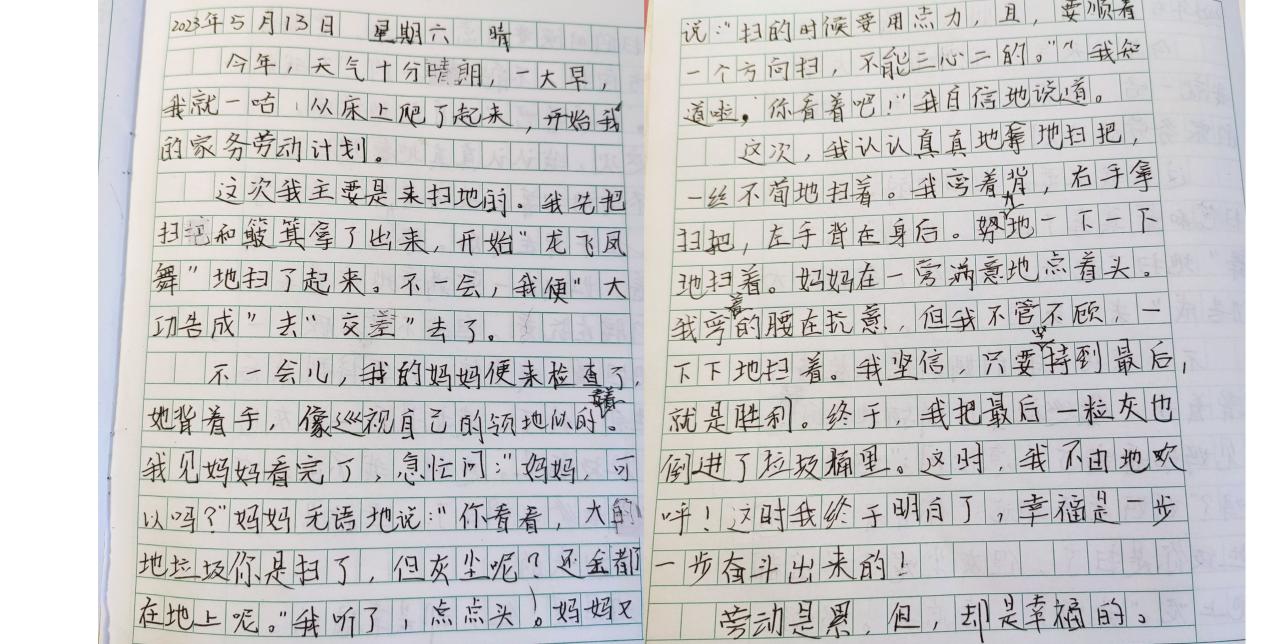 2023年5月13日 星期六 晴
今年，天气十分晴朗，一大早，
我就一咕 从床上爬了起来，开始我
的家务劳动计划。
这次我主要是来扫地的。我先把
扫把和簸箕拿了出来，开始“龙飞凤
舞”地扫了起来。不一会，我便“大
功告成”去“交差”去了。
不一会儿，我的妈妈便来检查了，
她背着手，像巡视自己的领地似的。
我见妈妈看完了，急忙问：“妈妈，可
以吗？”妈妈无语地说：“你看看，大的
地垃圾你是扫了，但灰尘呢？还全都
在地上呢。”我听了，点点头！妈妈又
说：“扫的时候要用点力，且，要顺着
一个方向扫，不能三心二的。”“我知
道啦，你看着吧！”我自信地说道。
这次，我认认真真地拿地扫把，
一丝不苟地扫着。我弯着背，右手拿
扫把，左手背在身后。努力地一下一下
地扫着。妈妈在一旁满意地点着头。
我弯着的腰在抗意，但我不管不顾，一
下下地扫着。我坚信，只要坚持到最后，
就是胜利。终于，我把最后一粒灰也
倒进了垃圾桶里。这时，我不由地欢
呼！这时我终于明白了，幸福是一步
一步奋斗出来的！
劳动是累，但，却是幸福的。